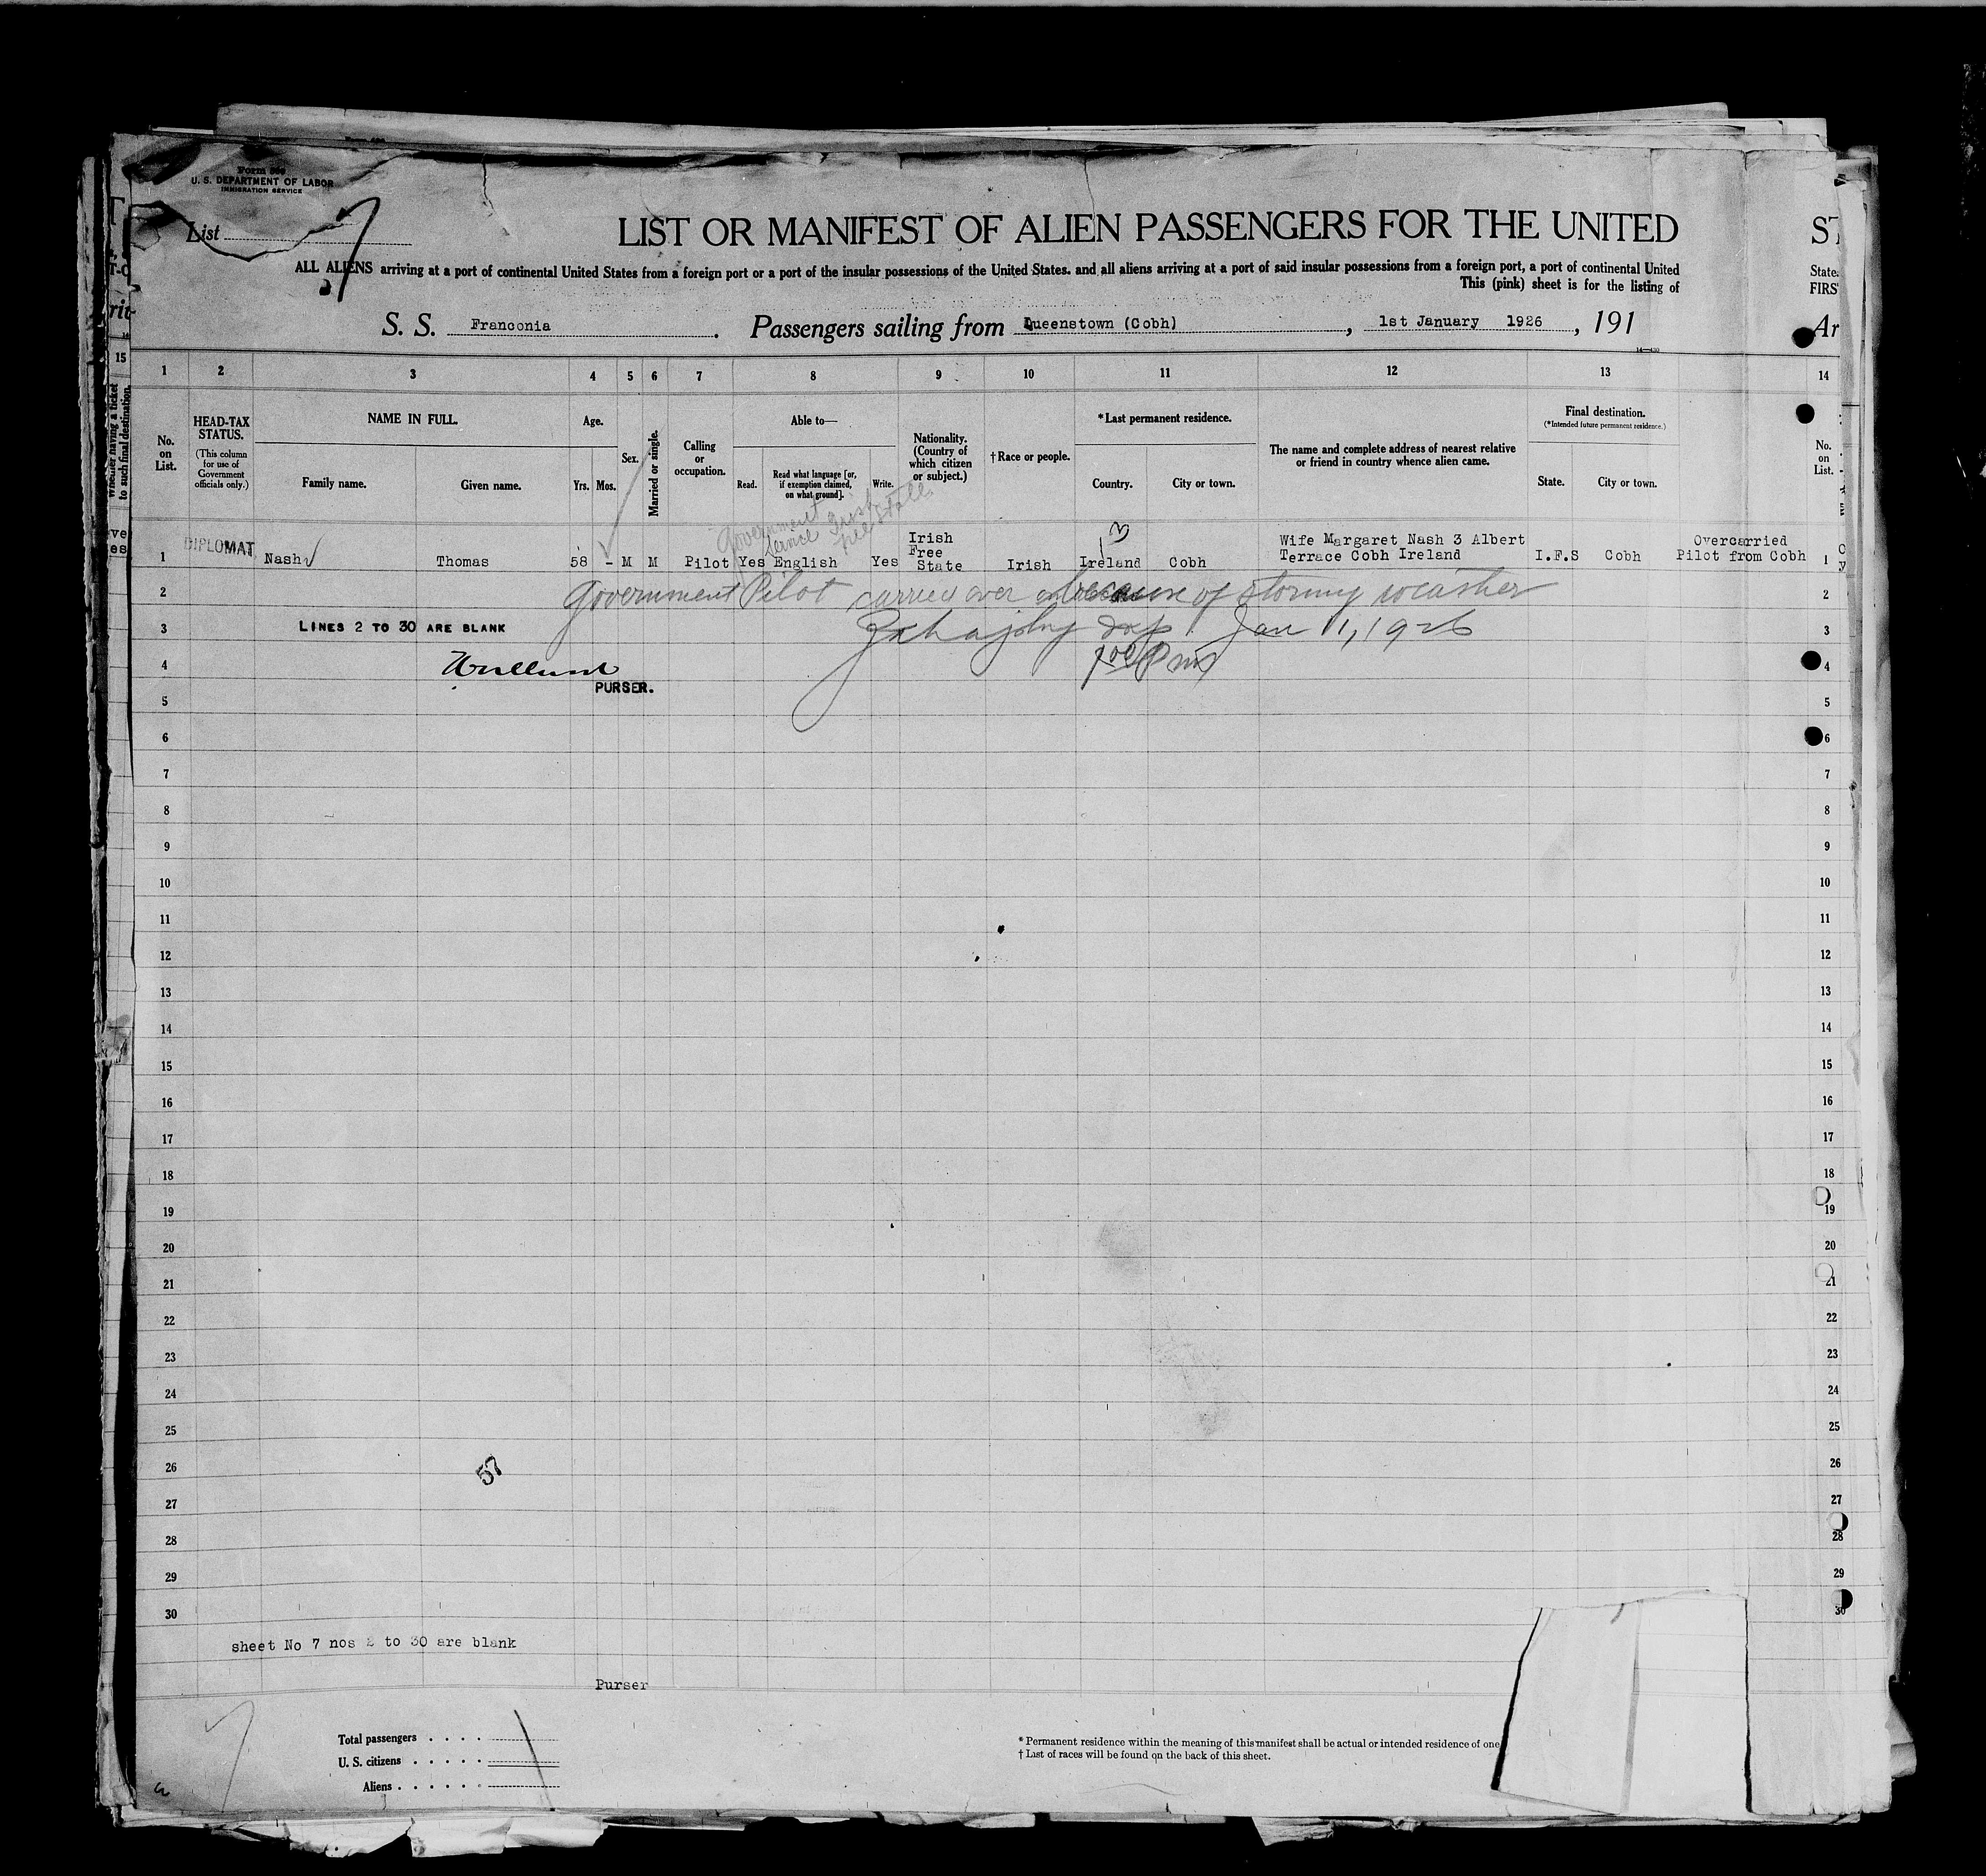 Form 500
U. S. DEPARTMENT OF LABOR
IMMIGRATION SERVICE
List 7
LIST OR MANIFEST OF ALIEN PASSENGERS FOR THE UNITED
ST
ALL ALIENS arriving at a port of continental United States from a foreign port or a port of the insular possessions of the United States, and all aliens arriving at a port of said insular possessions from a foreign port, a port of continental United
State
This (pink) sheet is for the listing of
FIRS
S. S. Franconia. Passengers sailing from Queenstown (Cobh), 1st January 1926, 191
Ar
14—430
15
1 2 3 4 5 6 7 8 9 10 11 12 13 14
Whether having a ticket to such final destination.
No. on List.
HEAD-TAX STATUS.
(This column for use of Government officials only.)
NAME IN FULL.
Family name. Given name.
Age.
Yrs. Mos.
Sex.
Married or single.
Calling or occupation.
Able to—
Read. Read what language [or, if exemption claimed, on what ground]. Write.
Nationality. (Country of which citizen or subject.)
†Race or people.
*Last permanent residence.
Country. City or town.
The name and complete address of nearest relative or friend in country whence alien came.
Final destination.
(*Intended future permanent residence.)
State. City or town.
No. on List.
Government Irish
Free State
DIPLOMAT
1 Nash Thomas 58 - M M Pilot Yes English Yes Irish Free State Irish Ireland Cobh Wife Margaret Nash 3 Albert Terrace Cobh Ireland I.F.S Cobh Overcarried Pilot from Cobh 1
3
2 Government Pilot carried over because of stormy weather 2
3 LINES 2 TO 30 ARE BLANK Jan 11, 1926 3
4 7 00 Pm 4
PURSER.
5 5
6 6
7 7
8 8
9 9
10 10
11 11
12 12
13 13
14 14
15 15
16 16
17 17
18 18
19 19
20 20
21 21
22 22
23 23
24 24
25 25
26 57 26
27 27
28 28
29 29
30 30
sheet No 7 nos 2 to 30 are blank
Purser
7
Total passengers
U. S. citizens
Aliens
* Permanent residence within the meaning of this manifest shall be actual or intended residence of one
† List of races will be found on the back of this sheet.